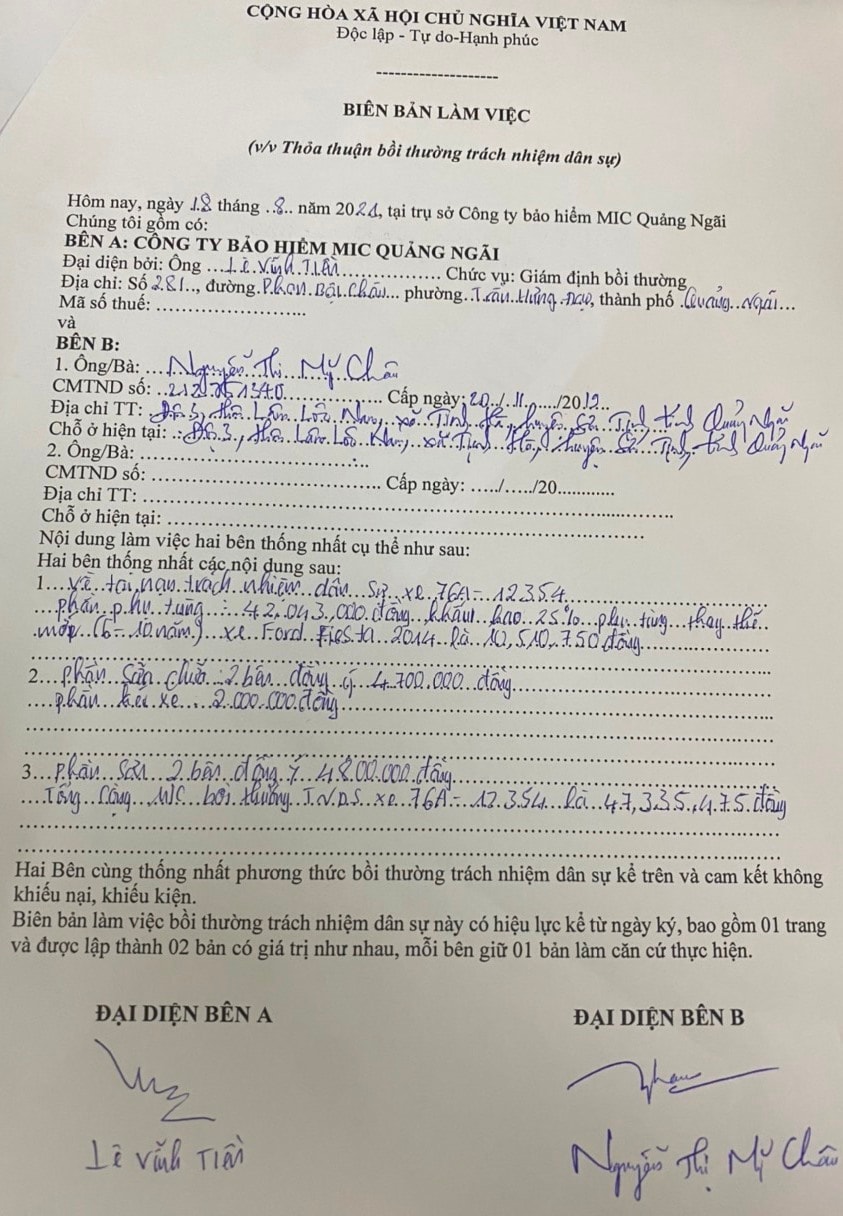 CỘNG HÒA XÃ HỘI CHỦ NGHĨA VIỆT NAM
Độc lập - Tự do-Hạnh phúc
--------------------
BIÊN BẢN LÀM VIỆC
(v/v Thỏa thuận bồi thường trách nhiệm dân sự)
Hôm nay, ngày 18 tháng 8 năm 2021, tại trụ sở Công ty bảo hiểm MIC Quảng Ngãi
Chúng tôi gồm có:
BÊN A: CÔNG TY BẢO HIỂM MIC QUẢNG NGÃI
Đại diện bởi: Ông Lê Vĩnh Tiến Chức vụ: Giám định bồi thường
Địa chỉ: Số 281, đường Phan Bội Châu phường Trần Hưng Đạo, thành phố Quảng Ngãi
Mã số thuế:
và
BÊN B:
1. Ông/Bà: Nguyễn Thị Mỹ Châu
CMTND số: Cấp ngày: 20/11/2012
Địa chỉ TT: Đội 3, thôn Lâm Lộc Nam, xã Tịnh Hà, huyện Sơn Tịnh, tỉnh Quảng Ngãi
Chỗ ở hiện tại: Đội 3, thôn Lâm Lộc Nam, xã Tịnh Hà, huyện Sơn Tịnh, tỉnh Quảng Ngãi
2. Ông/Bà:
CMTND số: Cấp ngày: ...../...../20............
Địa chỉ TT:
Chỗ ở hiện tại:
Nội dung làm việc hai bên thống nhất cụ thể như sau:
Hai bên thống nhất các nội dung sau:
1. Về tai nạn trách nhiệm dân sự xe 76A-12354
phần phụ tùng: 42.043.000 đồng khấu hao 25% phụ tùng thay thế
mới (6-10 năm) xe Ford Fiesta 2014 là 10,510,750 đồng
2. phần sửa chữa 2 bên đồng ý 4.700.000 đồng
phần kéo xe 2.000.000 đồng
3. phần sơn 2 bên đồng ý 4800.000 đồng
Tổng cộng MIC bồi thường T.N.D.S xe 76A-12.354 là 47,335,475 đồng
Hai Bên cùng thống nhất phương thức bồi thường trách nhiệm dân sự kể trên và cam kết không
khiếu nại, khiếu kiện.
Biên bản làm việc bồi thường trách nhiệm dân sự này có hiệu lực kể từ ngày ký, bao gồm 01 trang
và được lập thành 02 bản có giá trị như nhau, mỗi bên giữ 01 bản làm căn cứ thực hiện.
ĐẠI DIỆN BÊN A ĐẠI DIỆN BÊN B
Lê Vĩnh Tiến Nguyễn Thị Mỹ Châu